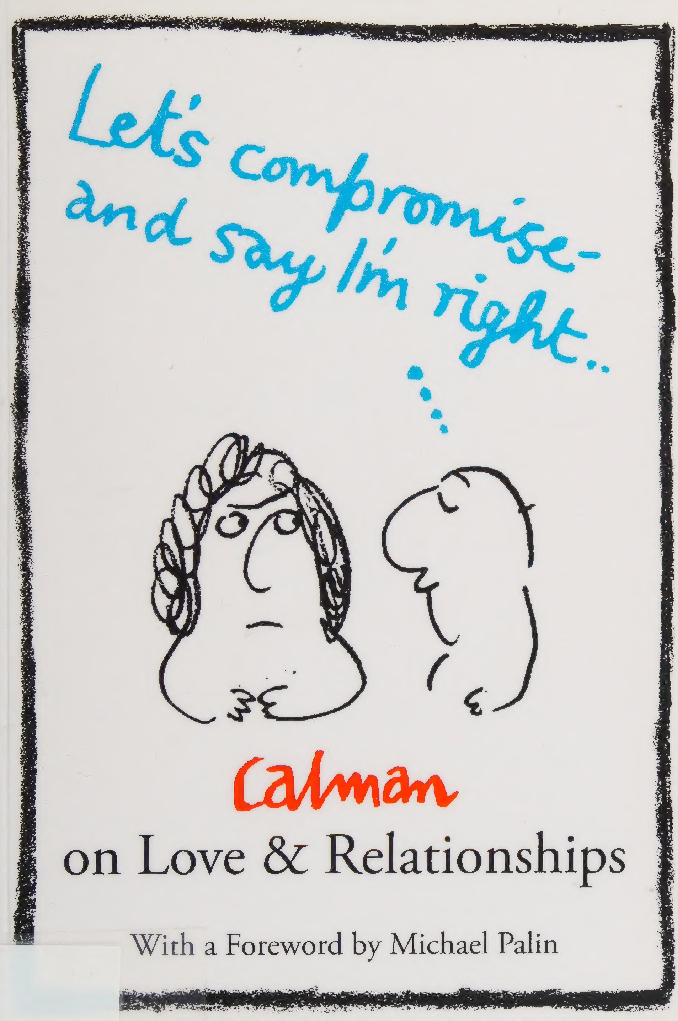 Let's compromise-
and say I'm right..
Calman
on Love & Relationships
With a Foreword by Michael Palin